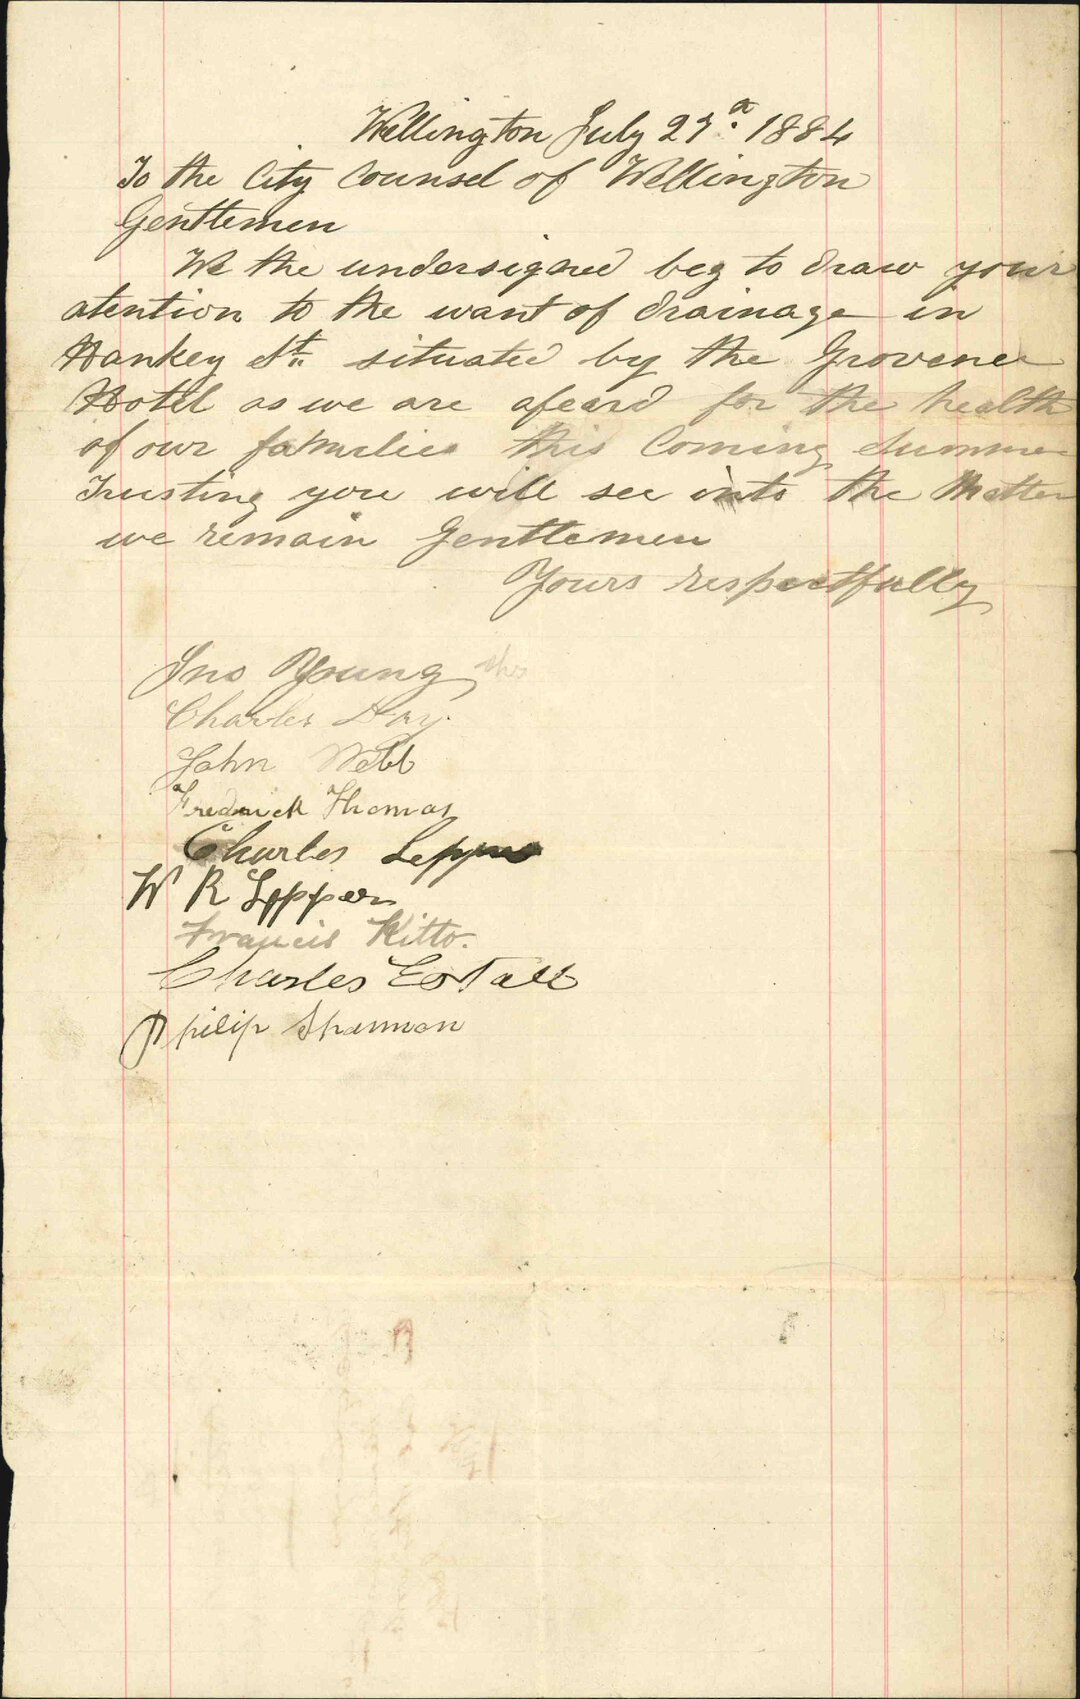 Wellington July 27th 1884
To the City Counsel of Wellington
Gentlemen
We the undersigned beg to draw your
atention to the want of drainage in
Hankey St. situated by the Grovener
Hotel as we are afeard for the health
of our families this Coming Summer
Trusting you will see into the Matter
we remain Gentlemen
Yours respectfully
Jno Young
Charles Hay.
John Webb
Frederick Thomas
Charles
W R Lepper
Francis Kitto.
Charles
Philip Shannon